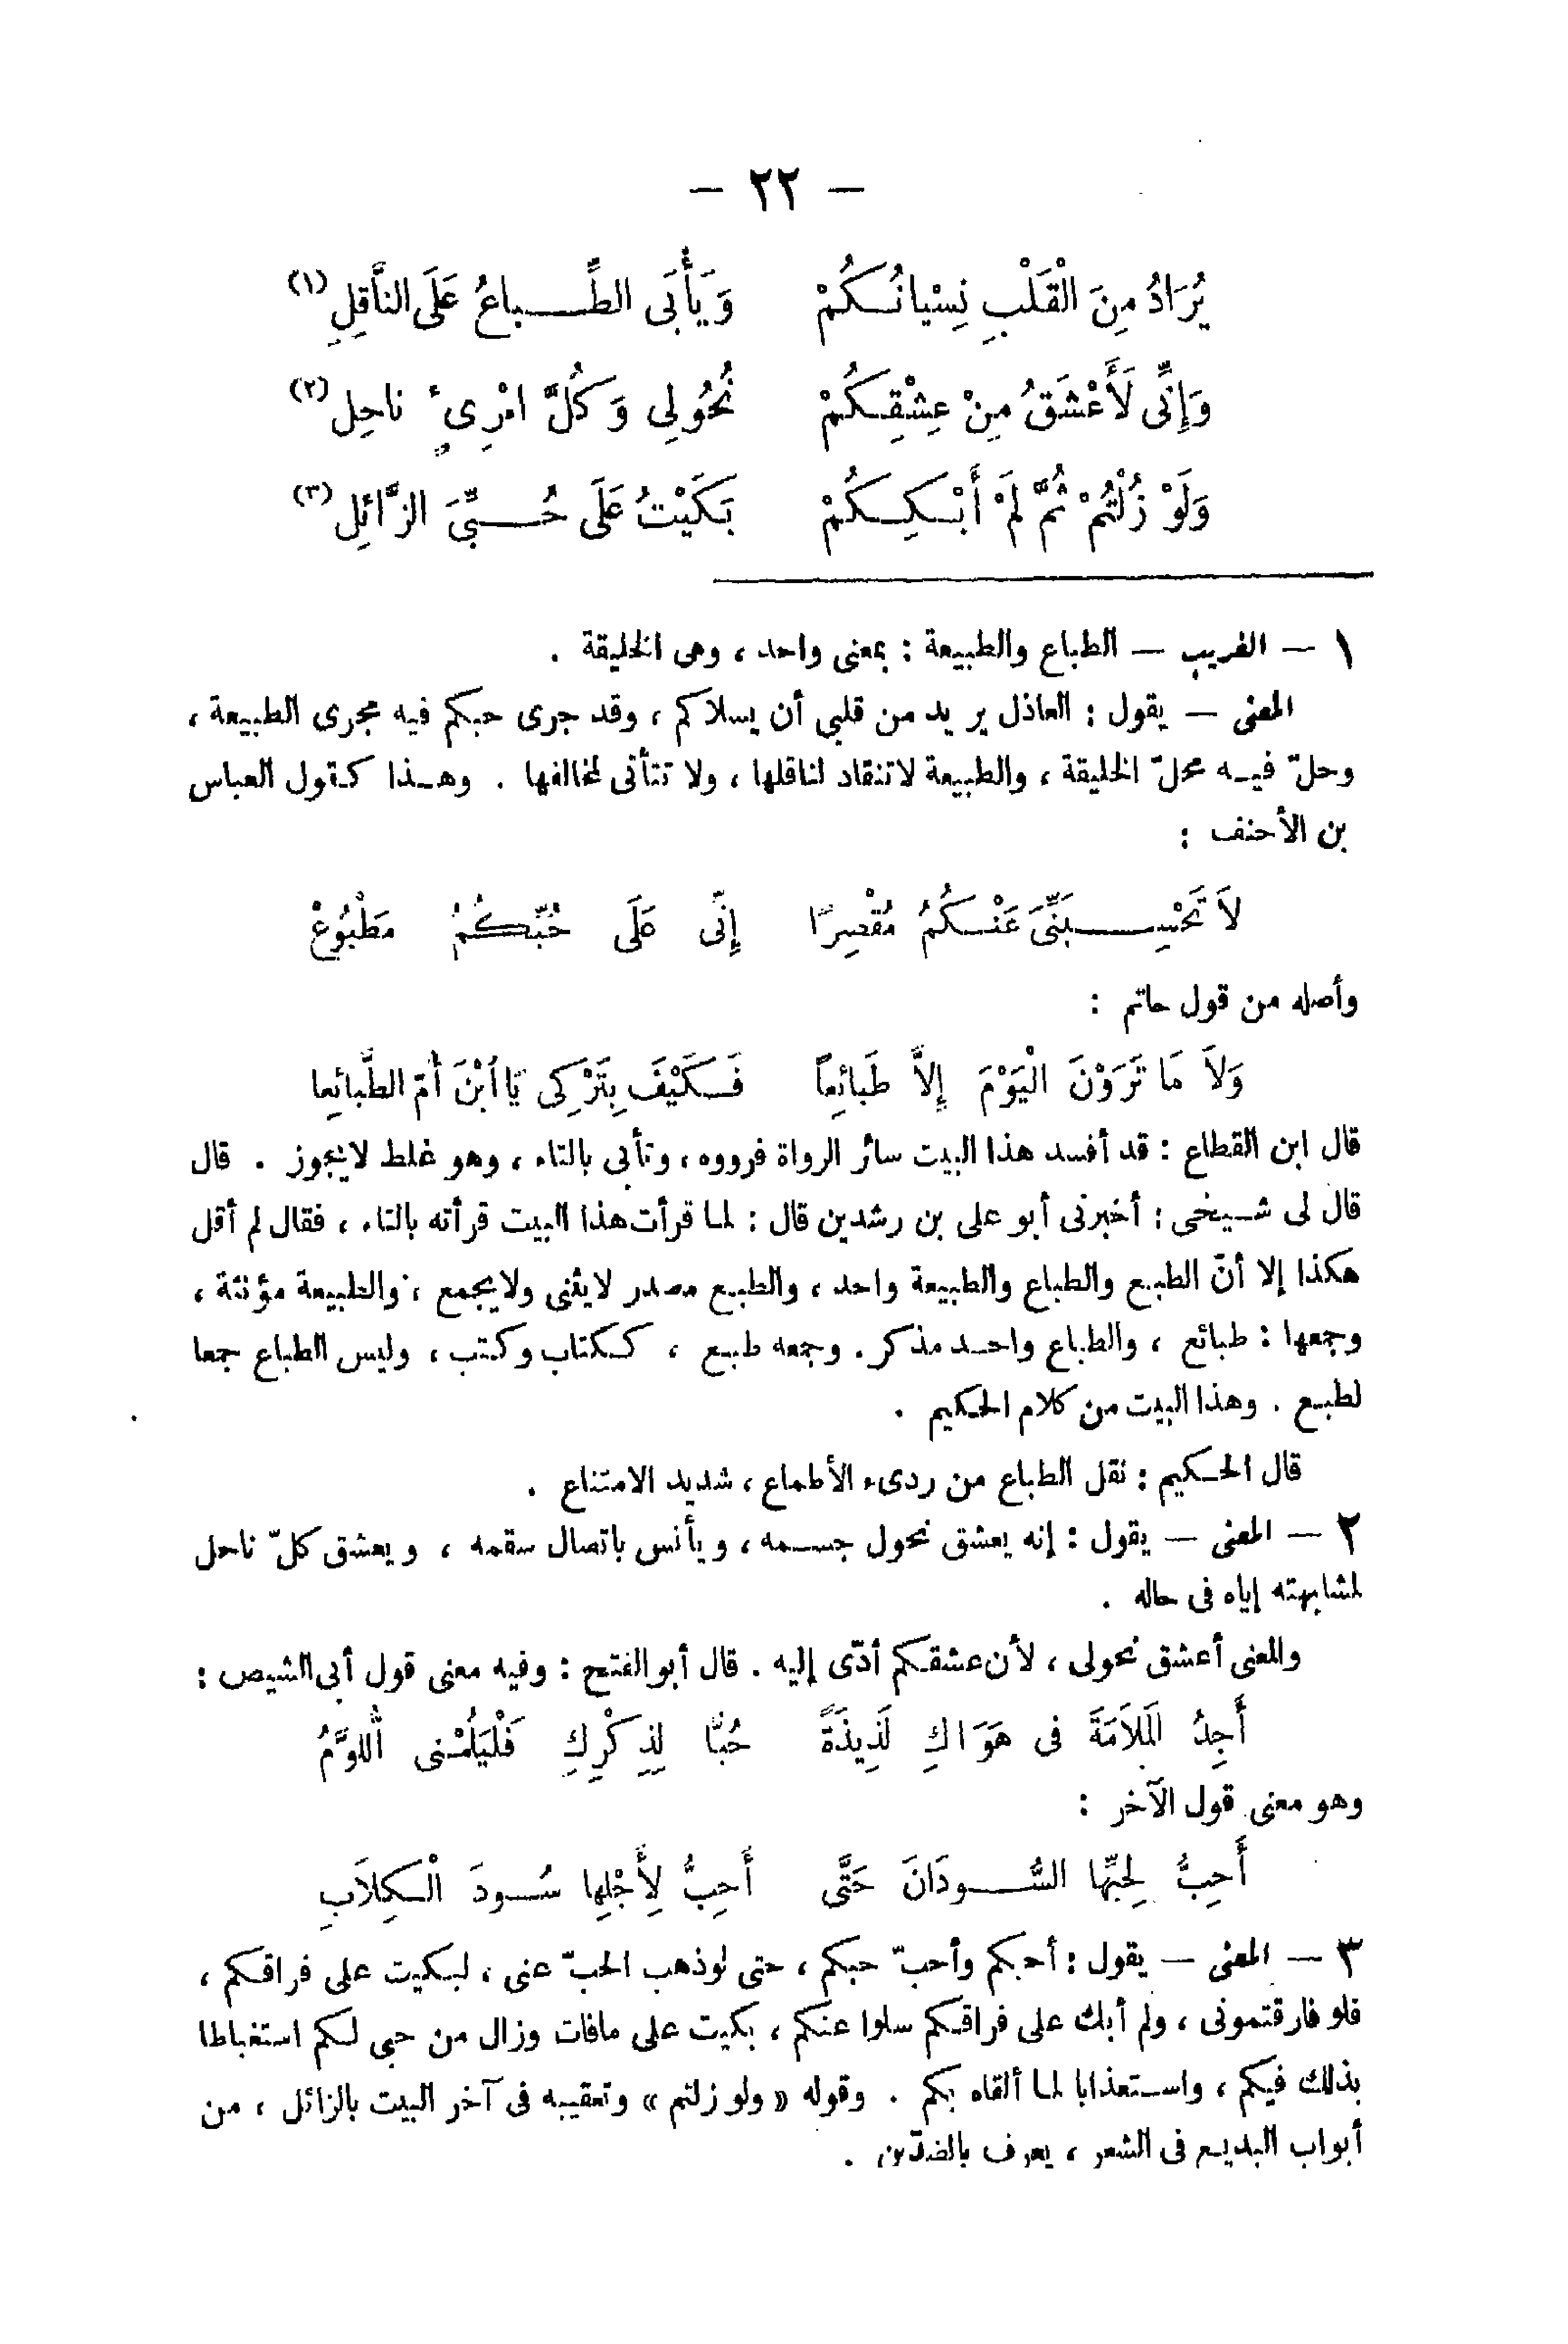 — ٢٢ —
يُرَادُ مِنَ الْقَلْبِ نِسْيانُكُمْ وَيَأْبَى الطِّباعُ عَلَى النَّاقِلِ (١)
وَإِنِّى لَأَعْشَقُ مِنْ عِشْقِكُمْ نُحُولِى وَكُلَّ امْرِىءٍ ناحِلِ (٢)
وَلَوْ زُلْتُمْ ثُمَّ لَمْ أَبْكِكُمْ بَكَيْتُ عَلَى حُبِّىَ الزَّائِلِ (٣)
١ — الغريب — الطباع والطبيعة : بمعنى واحد ، وهى الخليقة .
المعنى — يقول : العاذل يريد من قلبى أن يسلاكم ، وقد جرى حبكم فيه مجرى الطبيعة ،
وحلّ فيه محلّ الخليقة ، والطبيعة لاتنقاد لناقلها ، ولا تتأتى لمخالفها . وهذا كقول العباس
بن الأحنف :
لاَ تَحْسِبَنِّىَ عَنْكُمُ مُقْصِرًا إِنِّى عَلَى حُبِّكُمُ مَطْبُوعْ
وأصله من قول حاتم :
وَلاَ مَا تَرَوْنَ الْيَوْمَ إِلاَّ طَبائِعاً فَكَيْفَ بِتَرْكِى يَا ابْنَ أُمّ الطَّبائِعا
قال ابن القطاع : قد أفسد هذا البيت سائر الرواة فرووه ، وتأبى بالتاء ، وهو غلط لايجوز . قال
قال لى شيخى : أخبرنى أبو على بن رشدين قال : لما قرأت هذا البيت قرأته بالتاء ، فقال لم أقل
هكذا إلا أنّ الطبع والطباع والطبيعة واحد ، والطبع مصدر لايثنى ولايجمع ، والطبيعة مؤنثة ،
وجمعها : طبائع ، والطباع واحد مذكر . وجمعه طبع ، ككتاب وكتب ، وليس الطباع جمعا
لطبع . وهذا البيت من كلام الحكيم .
قال الحكيم : نقل الطباع من ردىء الأطماع ، شديد الامتناع .
٢ — المعنى — يقول : إنه يعشق نحول جسمه ، ويأنس باتصال سقمه ، ويعشق كلّ ناحل
لمشابهته إياه فى حاله .
والمعنى أعشق نحولى ، لأن عشقكم أدّى إليه . قال أبو الفتح : وفيه معنى قول أبى الشيص :
أَجِدُ الْمَلاَمَةَ فى هَوَاكِ لَذِيذَةً حُبًّا لِذِكْرِكِ فَلْيَلُمْنى اللُّوَّمُ
وهو معنى قول الآخر :
أُحِبُّ لِحُبِّها السُّودَانَ حَتَّى أُحِبُّ لِأَجْلِها سُودَ الْكِلاَبِ
٣ — المعنى — يقول : أحبكم وأحبّ حبكم ، حتى لوذهب الحبّ عنى ، لبكيت على فراقكم ،
فلو فارقتمونى ، ولم أبك على فراقكم سلوا عنكم ، بكيت على مافات وزال من حبى لكم استغباطا
بذلك فيكم ، واستعذابا لما ألقاه بكم . وقوله « ولو زلتم » وتعقيبه فى آخر البيت بالزائل ، من
أبواب البديع فى الشعر ، يعرف بالضدّين .